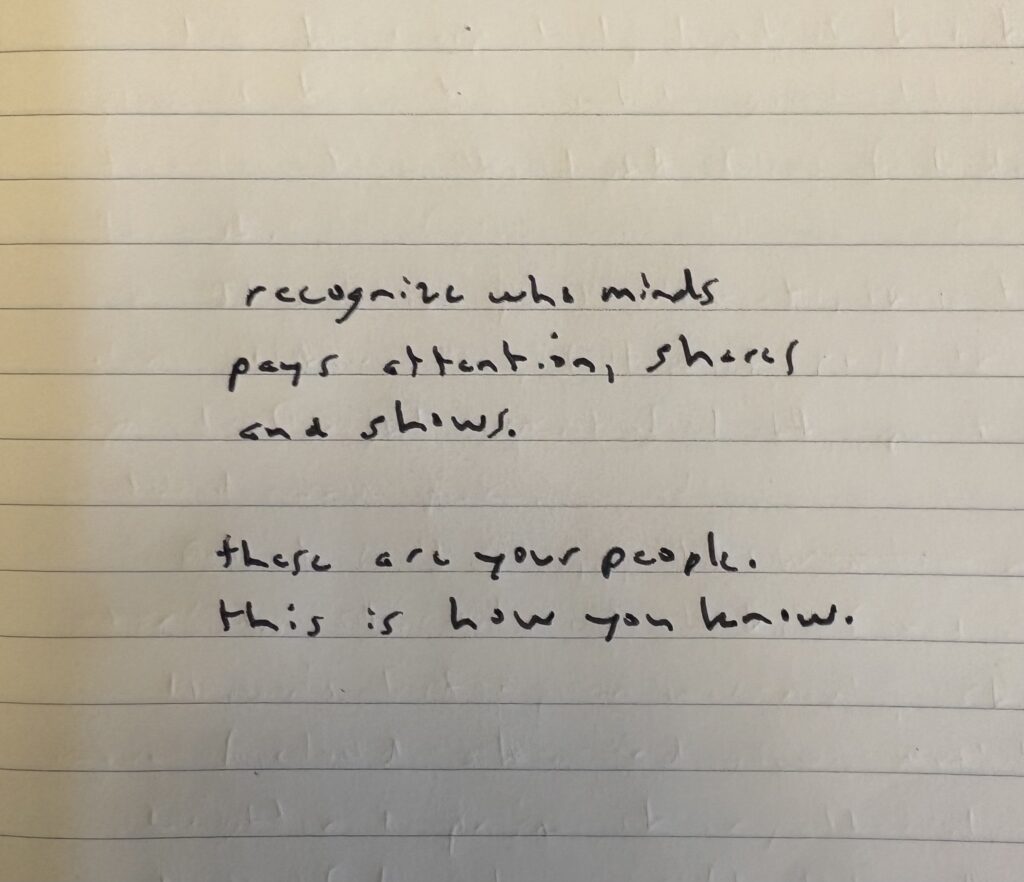 recognize who minds
pays attention, shares
and shows.
these are your people.
this is how you know.